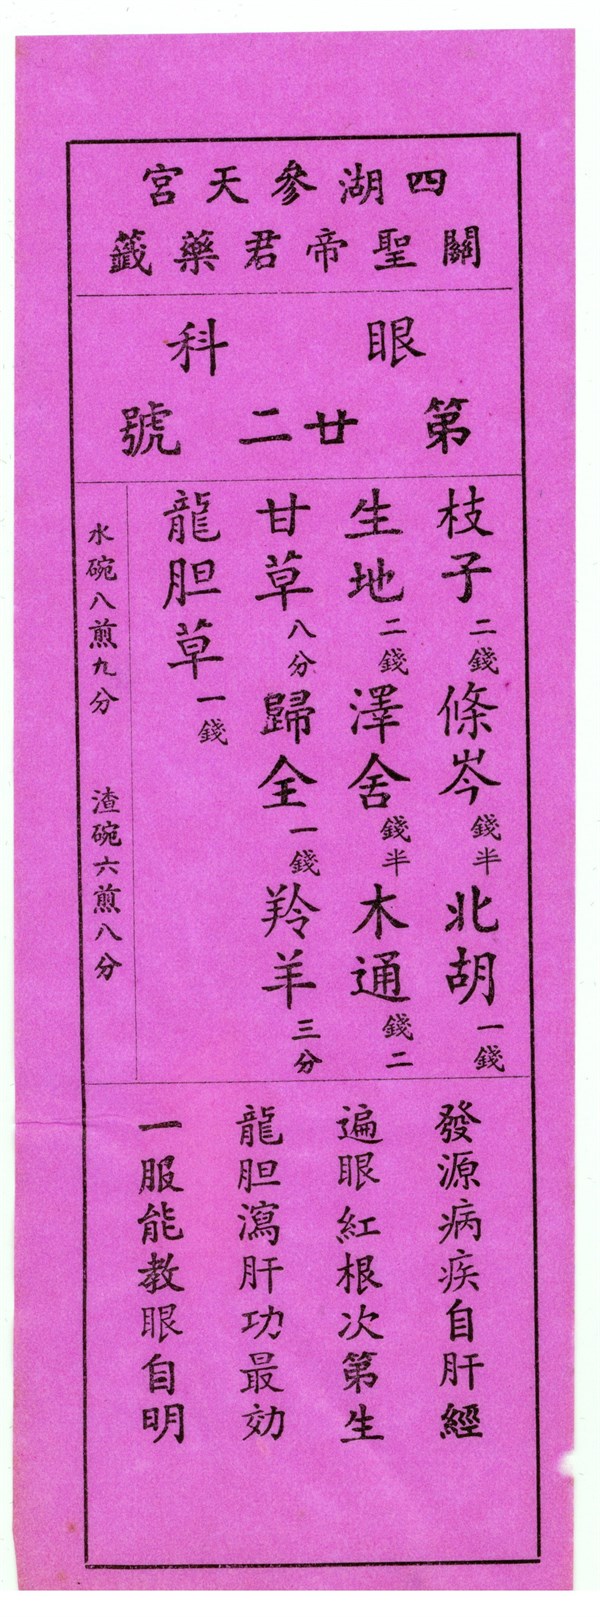 四湖參天宮
關聖帝君藥籤
眼科
第廿二號
枝子二錢條岑錢半北胡一錢
生地二錢澤舍錢半木通錢二
甘草八分歸全一錢羚羊三分
龍胆草一錢
水碗八煎九分 渣碗六煎八分
發源病疾自肝經
遍眼紅根次第生
龍胆瀉肝功最効
一服能教眼自明